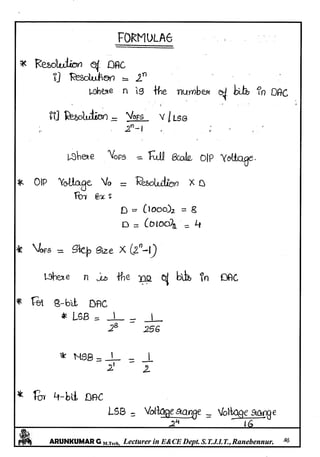 FORMULAS
* Resolution of DAC
i] Resolution = 2^n
where n is the number of bits in DAC
ii] Resolution = VOFS / 2^n-1 V/LSB
Where VOFS = Full Scale O/P Voltage.
* O/P Voltage Vo = Resolution X D
For ex :
D = (1000)2 = 8
D = (0100)2 = 4
* VOFS = Step Size X (2^n-1)
Where n is the no of bits in DAC
* For 8-bit DAC
* LSB = 1/2^8 = 1/256
* MSB = 1/2^1 = 1/2
* For 4-bit DAC
LSB = Voltage range/2^4 = Voltage range/16
ARUNKUMAR G M.Tech, Lecturer in E&CE Dept. S.T.J.I.T., Ranebennur.